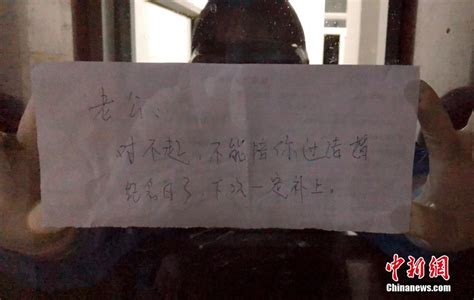 老公：
对不起，不能陪你过结婚
纪念日了，下次一定补上。
中新網
Chinanews.com